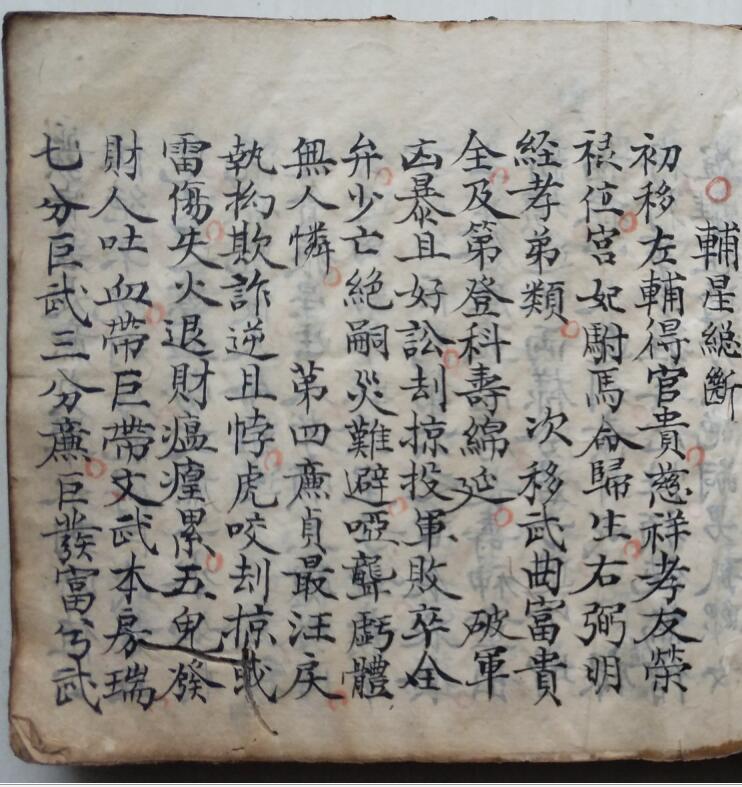 輔星總斷
初移左輔得官貴慈祥孝友榮
祿位宮妃駙馬命歸生右弼明
経孝弟類 次移武曲富貴
全及第登科壽綿延 破軍
凶暴且好訟刦掠投軍敗卒全
弁少亡絕嗣災難避啞聾虧體
無人憐 第四亷貞最汪戾
執拘欺詐逆且悖虎咬刦掠或
雷傷失火退財瘟㾮累五鬼發
財人吐血帶巨帶文武本房瑞
七分巨武三分亷巨發富兮武